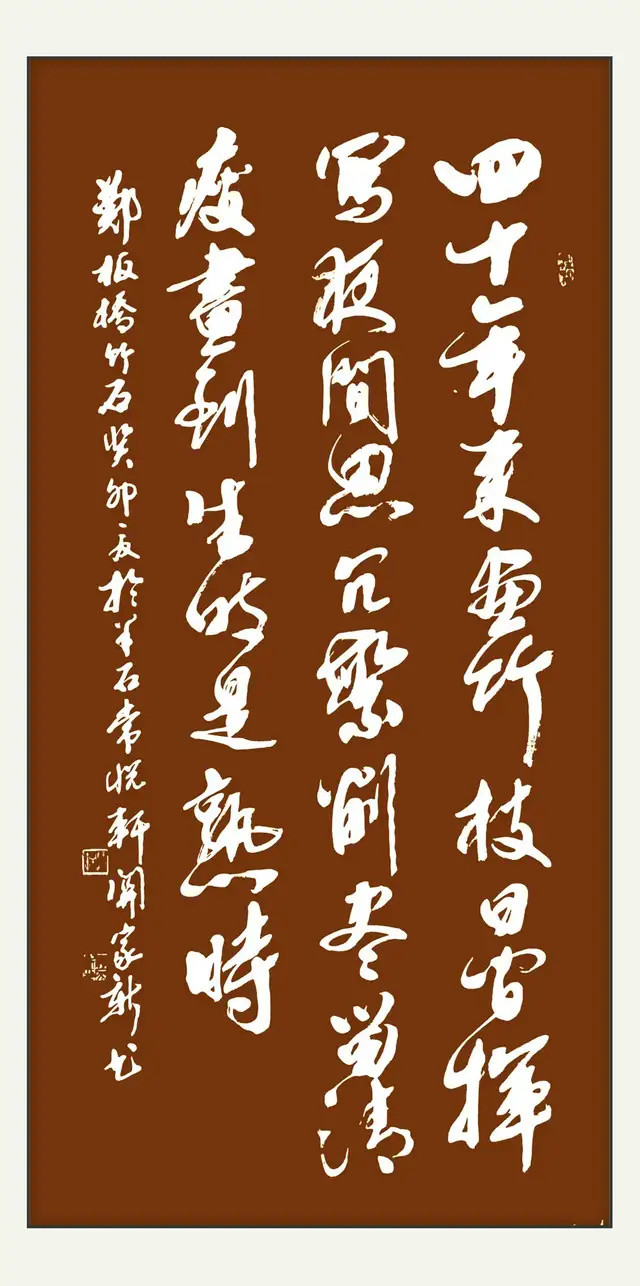 四十年来画竹枝日间挥
写夜间思冗繁削尽留清
瘦畫到生时是熟時
鄭板橋竹石癸卯夏於半石常悦軒闻家新书